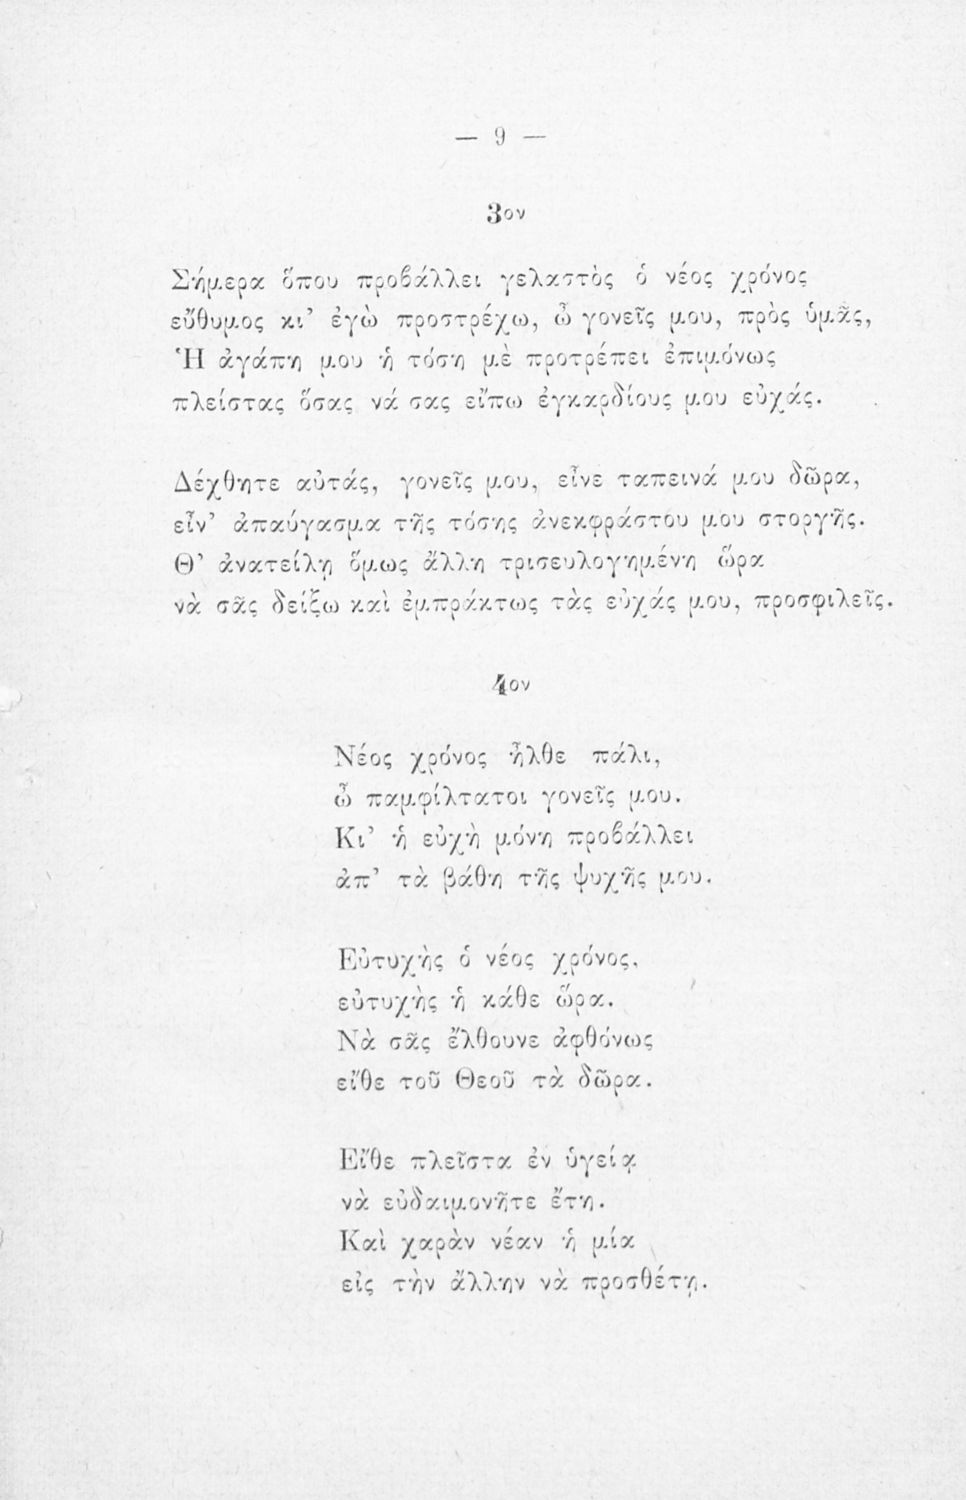 — 9 —
3ον
Σήμερα ὅπου προβάλλει γελαστὸς ὁ νέος χρόνος
εὔθυμος κι' ἐγὼ προστρέχω, ὦ γονεῖς μου, πρὸς ὑμᾶς,
Ἡ ἀγάπη μου ἡ τόση μὲ προτρέπει ἐπιμόνως
πλείστας ὅσας νά σας εἴπω ἐγκαρδίους μου εὐχάς.
Δέχθητε αὐτάς, γονεῖς μου, εἶνε ταπεινά μου δῶρα,
εἶν' ἀπαύγασμα τῆς τόσης ἀνεκφράστου μου στοργῆς.
Θ' ἀνατείλῃ ὅμως ἄλλη τρισευλογημένη ὥρα
νὰ σᾶς δείξω καὶ ἐμπράκτως τὰς εὐχάς μου, προσφιλεῖς.
4ον
Νέος χρόνος ἦλθε πάλι,
ὦ παμφίλτατοι γονεῖς μου.
Κι' ἡ εὐχὴ μόνη προβάλλει
ἀπ' τὰ βάθη τῆς ψυχῆς μου.
Εὐτυχὴς ὁ νέος χρόνος,
εὐτυχὴς ἡ κάθε ὥρα.
Νὰ σᾶς ἔλθουνε ἀφθόνως
εἴθε τοῦ Θεοῦ τὰ δῶρα.
Εἴθε πλεῖστα ἐν ὑγείᾳ
νὰ εὐδαιμονῆτε ἔτη.
Καὶ χαρὰν νέαν ἡ μία
εἰς τὴν ἄλλην νὰ προσθέτῃ.